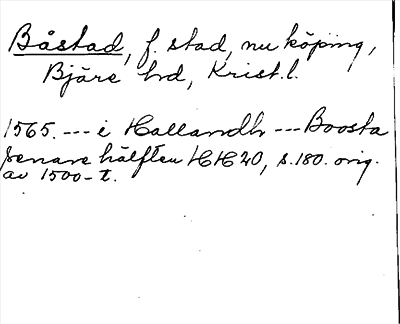 Båstad, f. stad, nu köping,
Bjäre hd, Krist. l.
1565. --- i Hallandh --- Boosta
senare hälften HH 20, s. 180. orig.
av 1500-t.